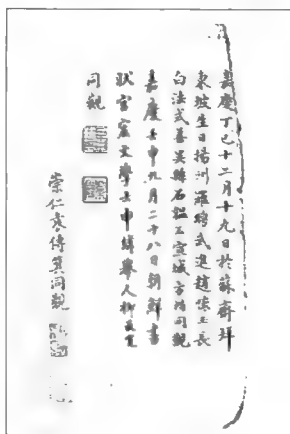 嘉慶丁巳十二月十九日於蘇齋拜
東坡生日揚州羅聘武進趙懷玉長
白法式善吳縣石韞玉宣城方同觀
嘉慶壬申九月二十八日朝鮮書
狀官文學士申緯舉人柳最寬
同觀
崇仁傳箕同觀